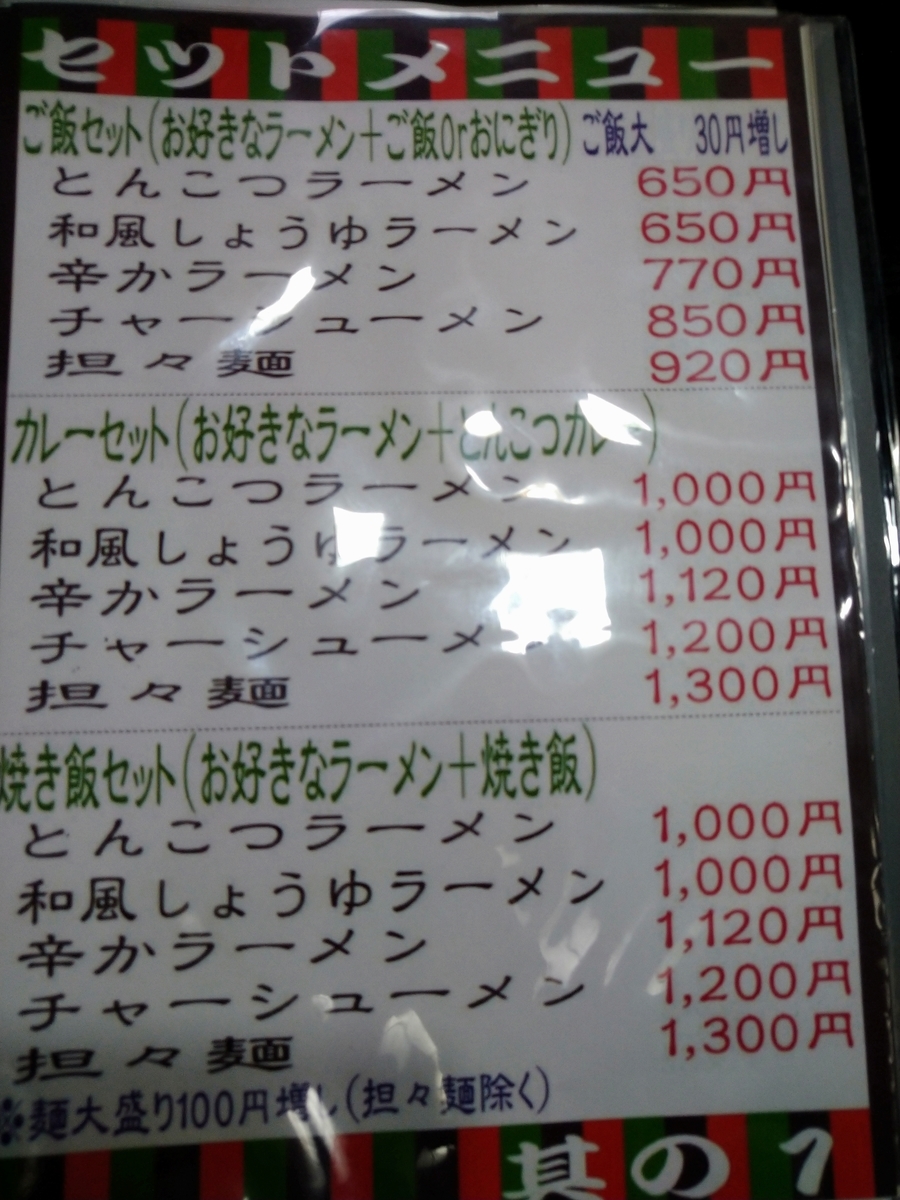 セットメニュー
ご飯セット(お好きなラーメン+ご飯Orおにぎり) ご飯大 30円増し
とんこつラーメン 650円
和風しょうゆラーメン 650円
辛かラーメン 770円
チャーシューメン 850円
担々麺 920円
カレーセット(お好きなラーメン+とんこつカレー)
とんこつラーメン 1,000円
和風しょうゆラーメン 1,000円
辛かラーメン 1,120円
チャーシューメン 1,200円
担々麺 1,300円
焼き飯セット(お好きなラーメン+焼き飯)
とんこつラーメン 1,000円
和風しょうゆラーメン 1,000円
辛かラーメン 1,120円
チャーシューメン 1,200円
担々麺 1,300円
※麺大盛り100円増し(担々麺除く)
其の1